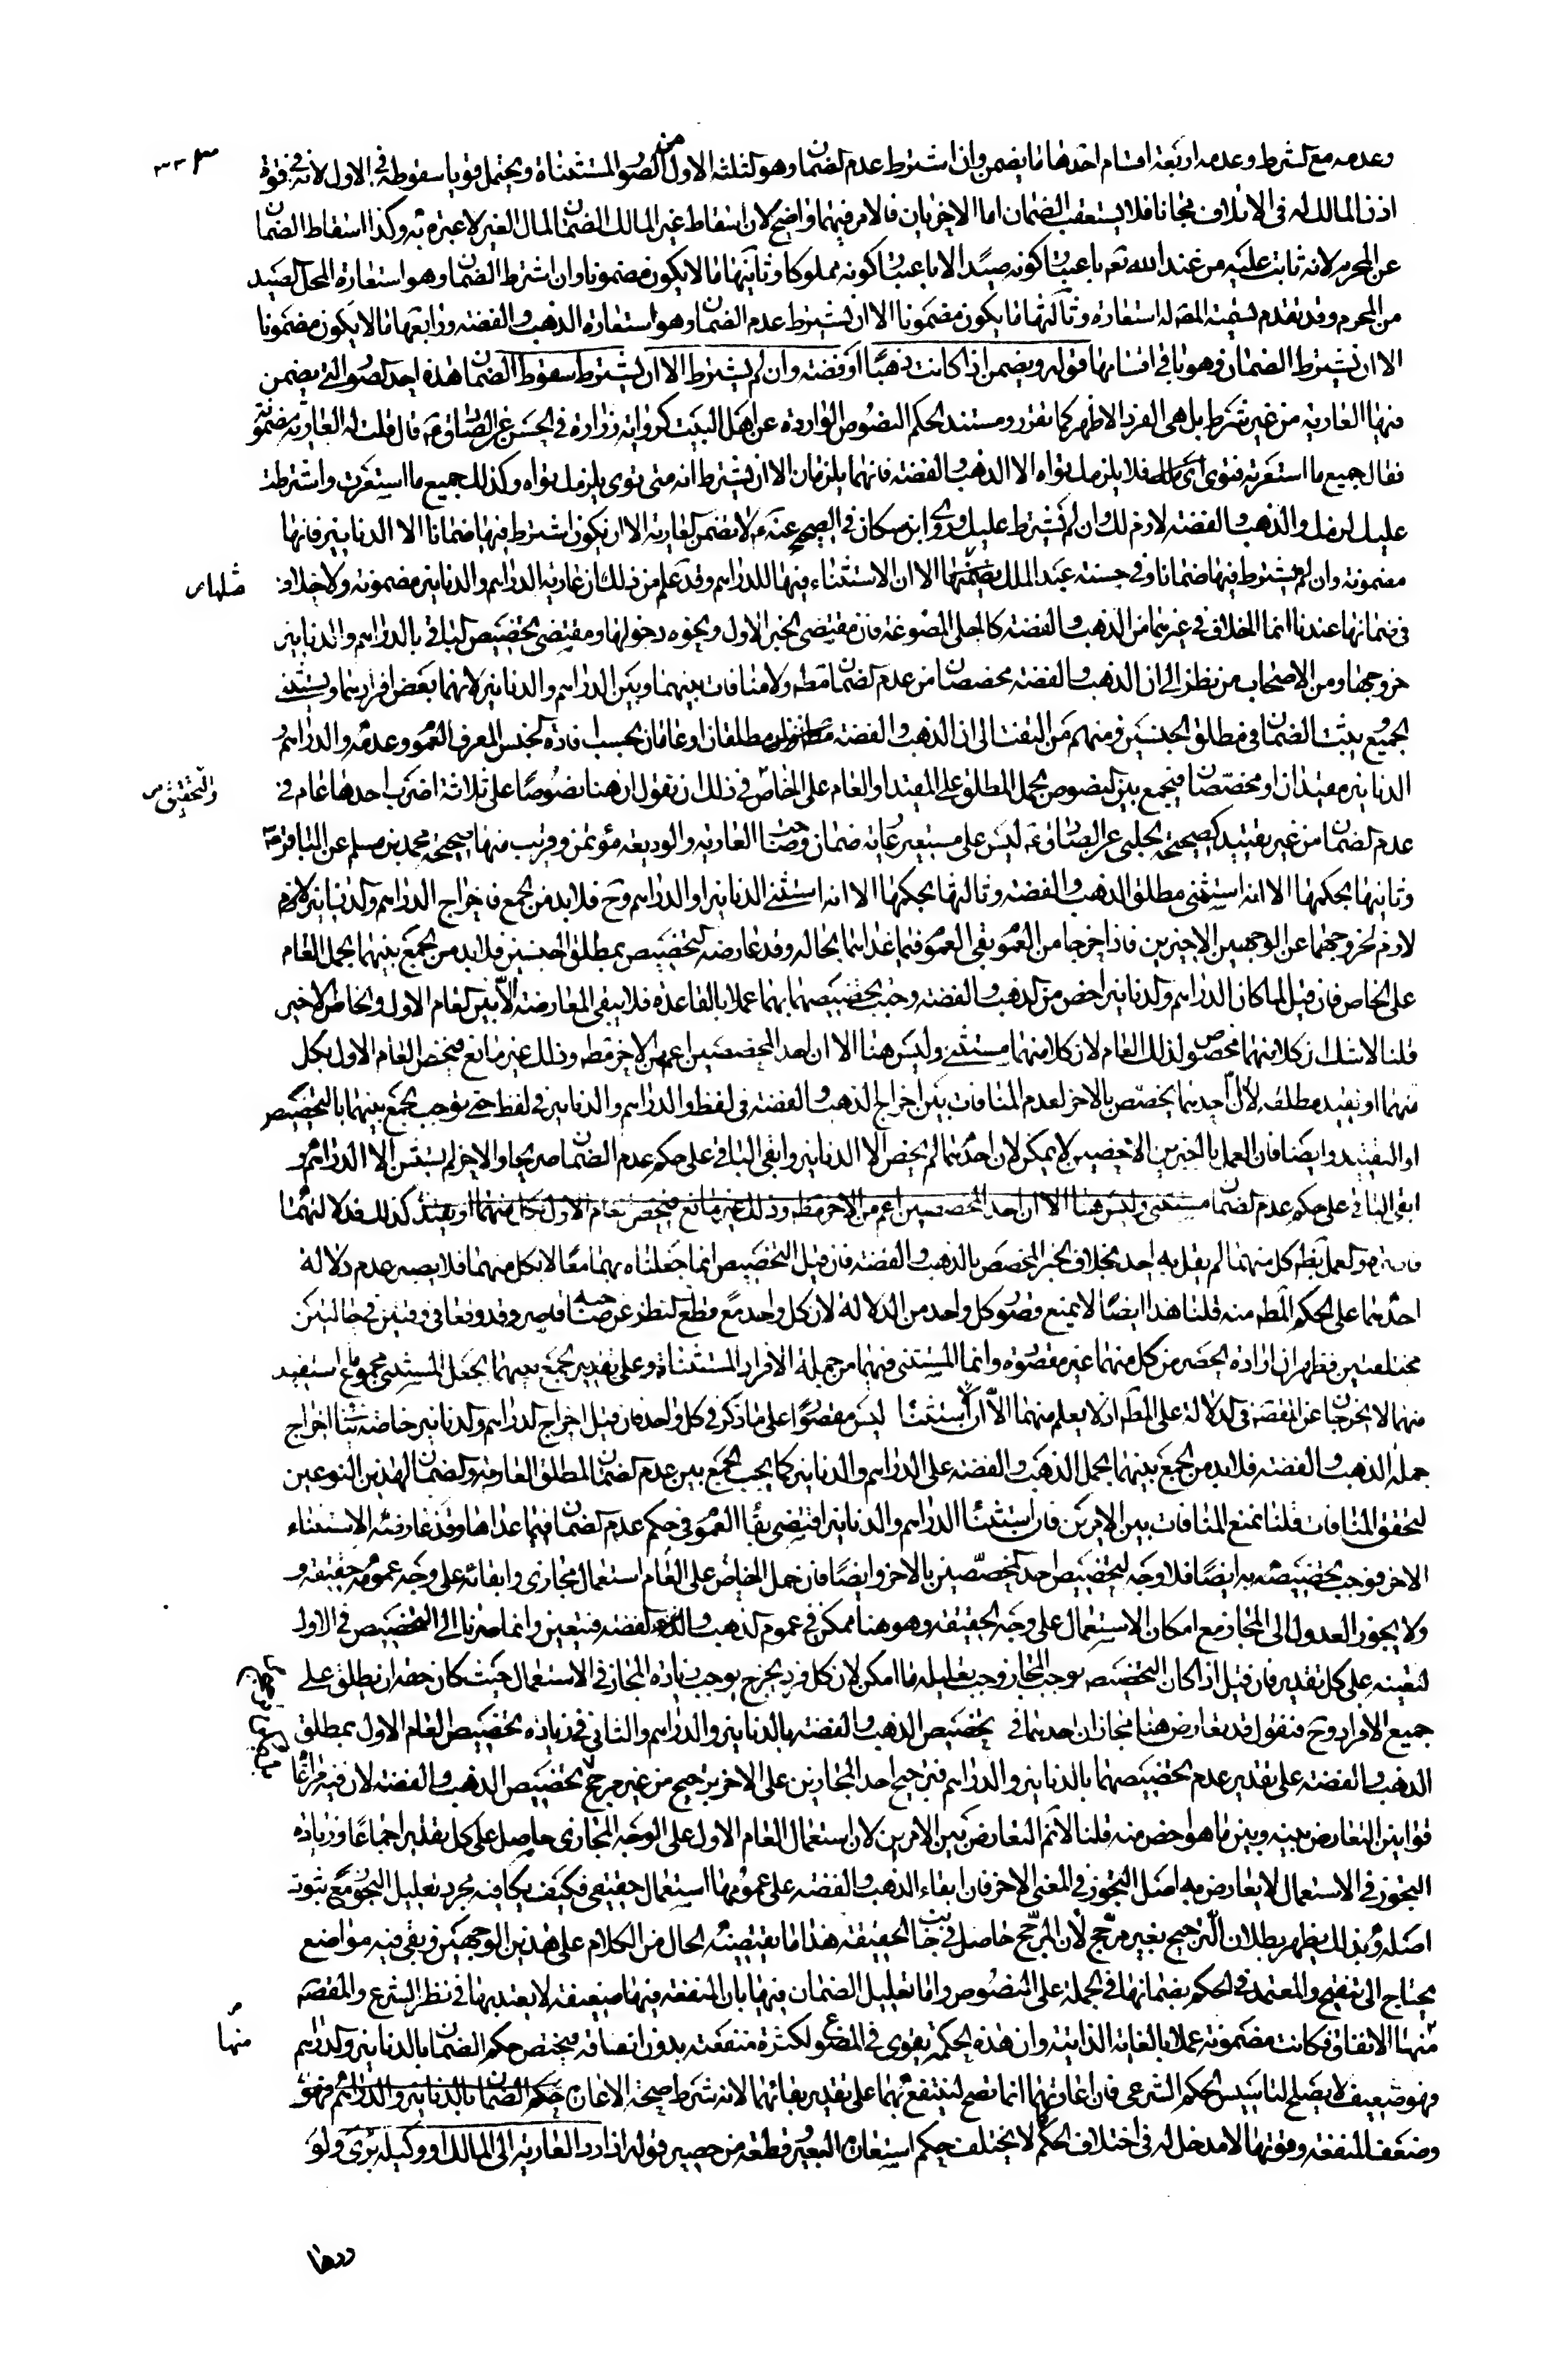 وعدمه مع الشرط وعدمه اربعة اقسام احدها ما يضمن وان اشترط عدم الضمان وهو الثلثة الاول من الصور المستثناة ويحتمل قويا سقوطه في الاول لانه في قوة
اذن المالك له في الاتلاف مجانا فلا يستعقب الضمان اما الاخريان فالامر فيهما واضح لان اسقاط غير المالك الضمان لمال الغير لا عبرة به وكذا اسقاط الضمان
عن المحرم لانه ثابت عليه من عند الله تعم باعتبار كونه صيدا لا باعتبار كونه مملوكا وثانيها ما لا يكون مضمونا وان اشترط الضمان وهو استعارة المحل الصيد
من المحرم وقد تقدم تسمية المصر له استعارة وثالثها ما يكون مضمونا الا ان يشترط عدم الضمان وهو استعارة الذهب والفضة ورابعها ما لا يكون مضمونا
الا ان يشترط الضمان وهو باقي اقسامها قوله ويضمن اذا كانت ذهبا او فضة وان لم يشترط الا ان يشترط سقوط الضمان هذه احد الصور التي يضمن
فيها العارية من غير شرط بل هي الفرد الاظهر كما تقرر ومستند الحكم النصوص الواردة عن اهل البيت كرواية زرارة في الحسن عن الصادق ع قال قلت له العارية مضمونة
فقال جميع ما استعرته فتوى اى هلك فلا يلزمك تواه الا الذهب والفضة فانهما يلزمان الا ان يشترط انه متى توى يلزمك تواه وكذلك جميع ما استعرت واشترط
عليك لزمك والذهب والفضة لازم لك وان لم تشترط عليك وروى ابن مسكان في الصحيح عنه ع لا تضمن العارية الا ان يكون اشترط فيها ضمانا الا الدنانير فانها
مضمونة وان لم يشترط فيها ضمانا وفي حسنة عبد الملك مثلها الا ان الاستثناء فيها للدراهم وقد علم من ذلك ان عارية الدراهم والدنانير مضمونة ولا خلاف
في ضمانها عندنا انما الخلاف في غيرهما من الذهب والفضة كالحلي المصوغة فان مقتضى الخبر الاول ونحوه دخولها ومقتضى تخصيص الباقي بالدراهم والدنانير
خروجها ومن الاصحاب من نظر الى ان الذهب والفضة مخصصان من عدم الضمان مطه ولا منافات بينهما وبين الدراهم والدنانير لانهما بعض افرادهما ويستثنى
الجميع ويثبت الضمان في مطلق الجنسين ومنهم من التفت الى ان الذهب والفضة مطلقان او عامان بحسب افادة الجنس المعرف العموم وعدمه والدراهم و
الدنانير مقيدان او مخصصان فيجمع بين النصوص بحمل المطلق على المقيد او العام على الخاص والتحقيق في ذلك ان نقول ان هنا نصوصا على ثلاثة اضرب احدها عام في
عدم الضمان من غير تقييد كصحيحة الحلبي عن الصادق ع ليس على مستعير عارية ضمان وصاحب العارية والوديعة مؤتمن وقريب منها صحيحة محمد بن مسلم عن الباقر ع
وثانيها بحكمها الا انه استثنى مطلق الذهب والفضة وثالثها بحكمها الا انه استثنى الدنانير او الدراهم وح فلابد من الجمع فاخراج الدراهم والدنانير لازم
لازم لخروجهما عن الوجهين الاخيرين فاذا خرجا من العموم بقي العموم فيما عداهما بحاله وقد عارضه التخصيص بمطلق الجنسين فلابد من الجمع بينهما بحمل العام
على الخاص فان قيل لما كان الدراهم والدنانير اخص من الذهب والفضة وجب تخصيصهما بهما عملا بالقاعدة فلا يبقى المعارضة الا بين العام الاول والخاص الاخير
قلنا لا شك ان كلا منهما مخصص لذلك العام لان كلا منهما مستثنى وليس هنا الا ان احد المخصصين اعم من الاخر مطه وذلك غير مانع فيخص العام الاول بكل
منهما او يقيد مطلقه لا ان احدهما يخصص بالاخر لعدم المنافات بين اخراج الذهب والفضة في لفظ والدراهم والدنانير في لفظ حتى يوجب الجمع بينهما بالتخصيص
او التقييد وايضا فان العمل بالخبرين الاخصين لا يمكن لان احدهما لم يخص الا الدنانير وابقى الباقي على حكم عدم الضمان صريحا والاخر لم يستثن الا الدراهم و
ابقى الباقي على حكم عدم الضمان مستثنى وليس هنا الا ان احد المخصصين اعم من الاخر مطه وذلك غير مانع فيخص العام الاول بكل منهما او يقيد كذلك فدلالتهما
قاصرة والعمل بظاهر كل منهما لم يقل به احد بخلاف الخبر المخصص بالذهب والفضة فان قيل التخصيص انما جعلناه بهما معا لا بكل منهما فلا يضر عدم دلالة
احدهما على الحكم المطه منه قلنا هذا ايضا لا يمنع قصور كل واحد من الدلالة لان كل واحد مع قطع النظر عن صاحبه قاصر وقد وقعا في وقتين في حالتين
مختلفتين فظهر ان ارادة الحصر من كل منهما غير مقصودة وانما المستثنى فيهما من جملة الافراد المستثناة وعلى تقدير الجمع بينهما بجعل المستثنى مجموع ما استفيد
منهما لا يخرجان عن القصور في الدلالة على المطه اذ لا يعلم منهما الا ان الاستثناء ليس مقصورا على ما ذكر في كل واحد فان قيل اخراج الدراهم والدنانير خاصة ينافي اخراج
جملة الذهب والفضة فلابد من الجمع بينهما بحمل الذهب والفضة على الدراهم والدنانير كما يجب الجمع بين عدم الضمان لمطلق العارية والضمان لهذين النوعين
لتحقق المنافات قلنا نمنع المنافات بين الامرين فان استثناء الدراهم والدنانير اقتضى بقاء العموم في حكم عدم الضمان فيما عداها وقد عارضه الاستثناء
الاخر فوجب تخصيصه به ايضا فلا وجه لتخصيص احد المخصصين بالاخر وايضا فان حمل الخاص على العام استعمال مجازى وابقائه على وجه عمومه حقيقة و
ولا يجوز العدول الى المجاز مع امكان الاستعمال على وجه الحقيقة وهو هنا ممكن في عموم الذهب والفضة فيتعين وانما صرنا الى التخصيص في الاول
لتعينه على كل تقدير فان قيل اذا كان التخصيص يوجب المجاز وجب تقليله ما امكن لان كل فرد يخرج يوجب زيادة المجاز في الاستعمال حيث كان حقه ان يطلق على
جميع الافراد وح فنقول قد تعارض هنا مجازان احدهما في تخصيص الذهب والفضة بالدنانير والدراهم والثاني في زيادة تخصيص العام الاول بمطلق
الذهب والفضة على تقدير عدم تخصيصهما بالدنانير والدراهم فترجيح احد المجازين على الاخر ترجيح من غير مرجح تخصيص الذهب والفضة لان فيه مراعاة
قوانين التعارض بينه وبين ما هو اخص منه قلنا لا نم التعارض بين الامرين لان استعمال العام الاول على الوجه المجازى حاصل على كل تقدير اجماعا وزيادة
التجوز في الاستعمال لا يعارض به اصل التجوز في المعنى الاخر فان ابقاء الذهب والفضة على عمومها استعمال حقيقي فكيف يكافيه مجرد تقليل التجوز مع ثبوت
اصله وبذلك يظهر بطلان الترجيح بغير مرجح لان المرجح حاصل في جانب الحقيقة هذا ما يقتضيه الحال من الكلام على هذين الوجهين وبقي فيه مواضع
يحتاج الى تنقيح والمعتمد في الحكم بضمانها في الجملة على النصوص واما تعليل الضمان فيها بان المنفعة فيها ضعيفة لا يعتد بها في نظر الشرع والمقصد
منها الانفاق فكانت مضمونة عملا بالغاية الذاتية وان هذه الحكمة يقوى في المصوغ لكثرة منفعته بدون انفاقه فيختص حكم الضمان بالدنانير والدراهم
فهو ضعيف لا يصلح لتاسيس الحكم الشرعي فان اعارتهما انما تصح لينتفع بهما على تقدير بقائهما لانه شرط صحة الاعارة حكم الضمان بالدنانير والدراهم فهو
وضعف المنفعة وقوتها لا مدخل له في اختلاف الحكم كما لا يختلف حكم استعارة البعير وقطعة من حصير قوله اذا رد العارية الى المالك او وكيله برئ ولو
ردها